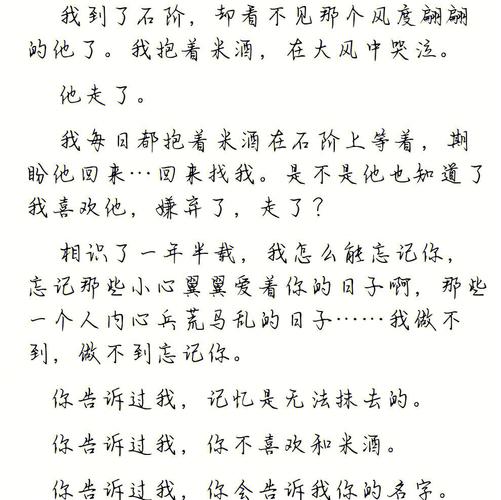 我到了石阶，却看不见那个风度翩翩
的他了。我抱着米酒，在大风中哭泣。
他走了。
我每日都抱着米酒在石阶上等着，期
盼他回来…回来找我。是不是他也知道了
我喜欢他，嫌弃了，走了？
相识了一年半载，我怎么能忘记你，
忘记那些小心翼翼爱着你的日子啊，那些
一个人内心兵荒马乱的日子……我做不
到，做不到忘记你。
你告诉过我，记忆是无法抹去的。
你告诉过我，你不喜欢和米酒。
你告诉过我，你会告诉我你的名字。